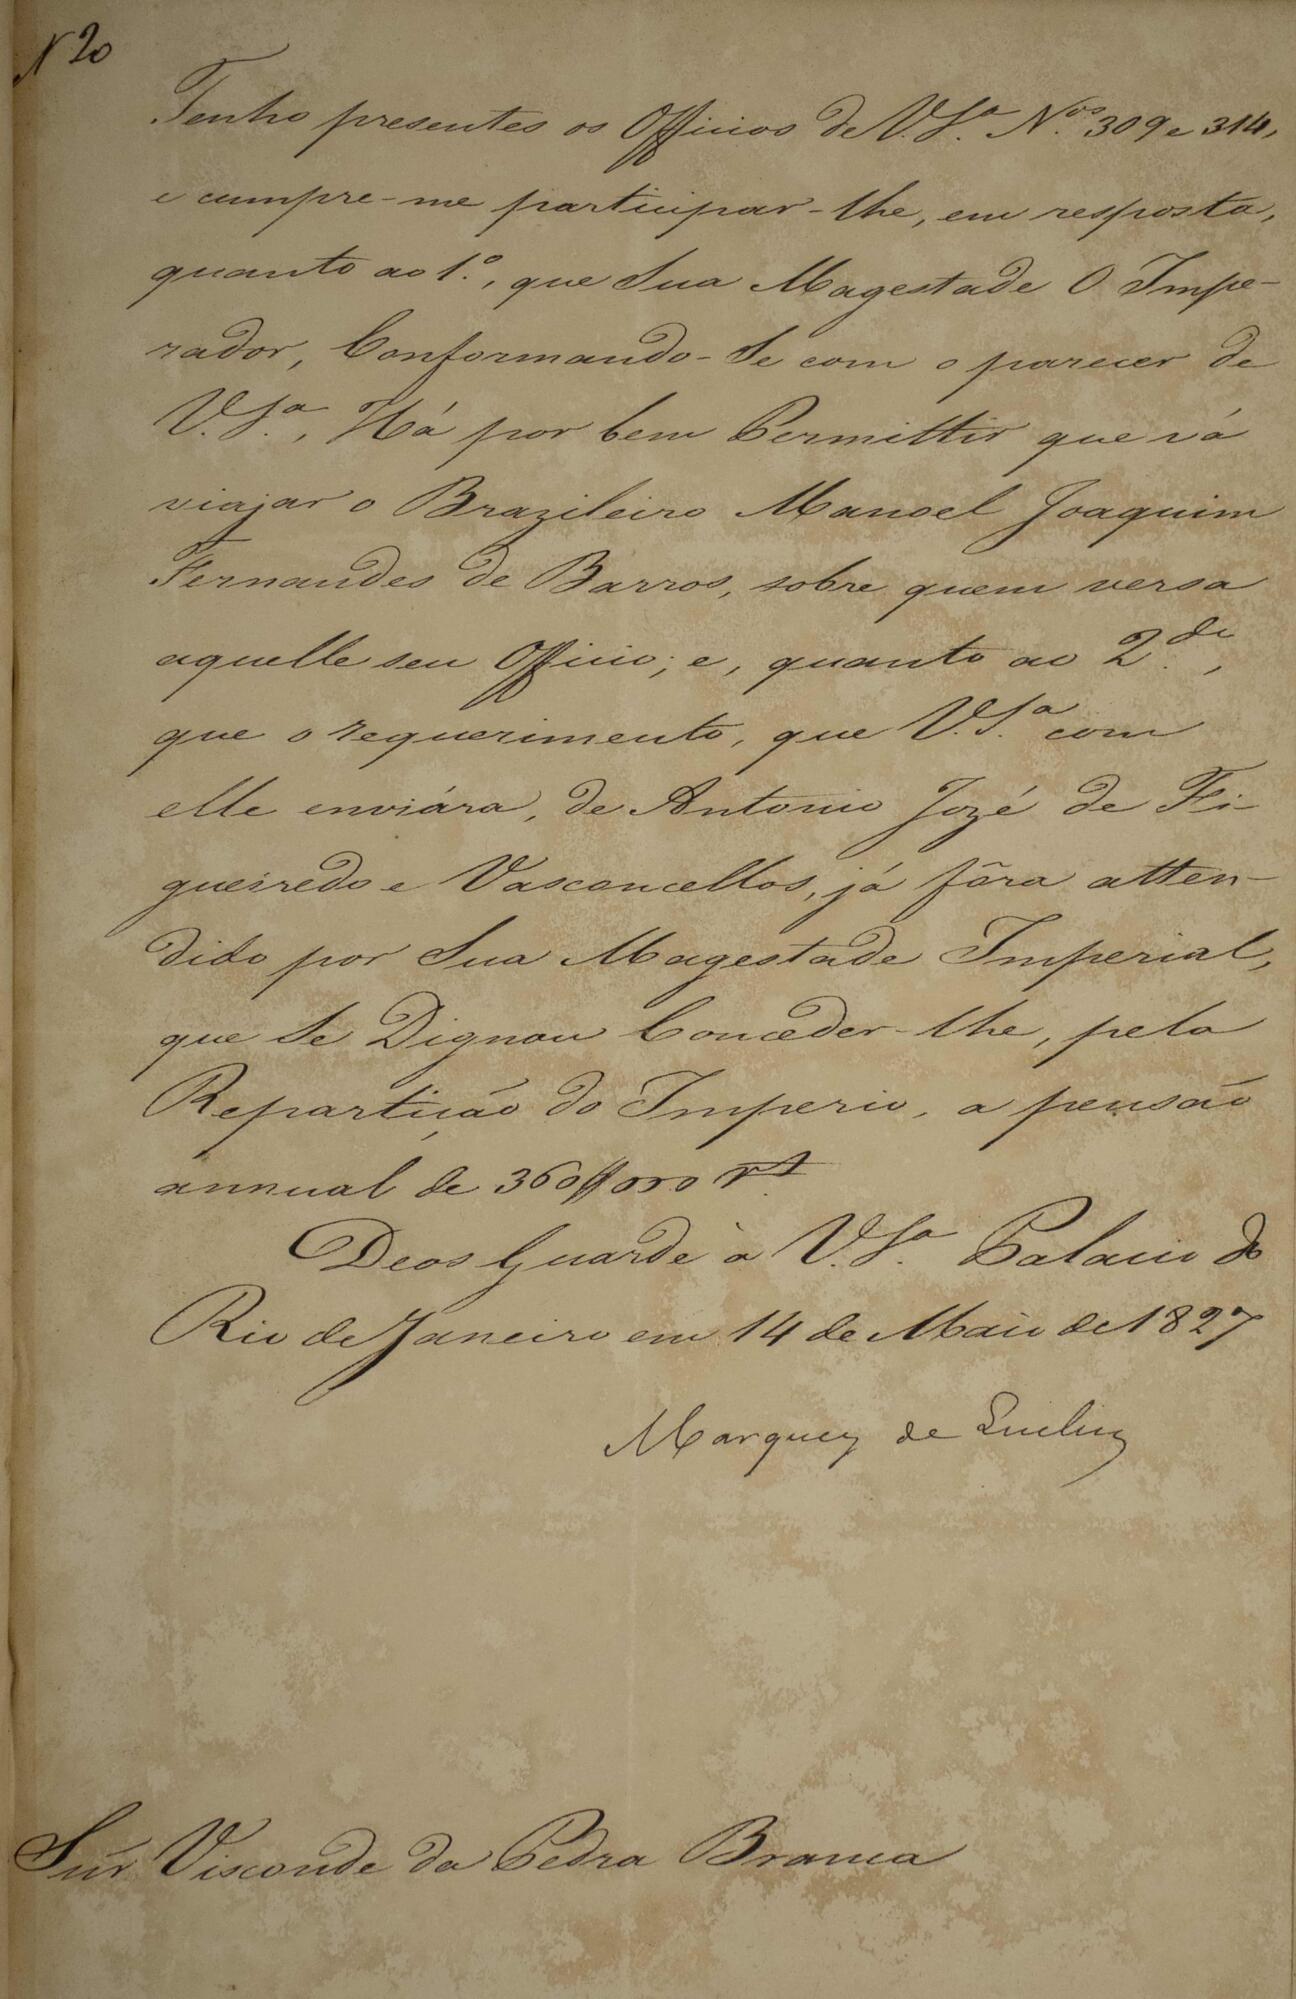 N 20
Tenho presentes os Officios de V. S.ª N.os 309 e 314,
e cumpre-me participar-lhe, em resposta,
quanto ao 1.º, que Sua Magestade O Impe-
rador, Conformando-Se com o parecer de
V. S.ª, Há por bem Permittir que vá
viajar o Brazileiro Manoel Joaquim
Fernandes de Barros, sobre quem versa
aquelle seu Officio; e, quanto ao 2.do,
que o requerimento, que V. S.ª com
elle enviára, de Antonio Jozé de Fi-
gueiredo e Vasconcellos, já fôra atten-
dido por Sua Magestade Imperial,
que Se Dignou Conceder-lhe, pela
Repartição do Imperio, a pensão
annual de 360$000 rs.
Deos Guarde a V. S.ª Palacio do
Rio de Janeiro em 14 de Maio de 1827
Marquez de Queluz
Snr. Visconde da Pedra Branca